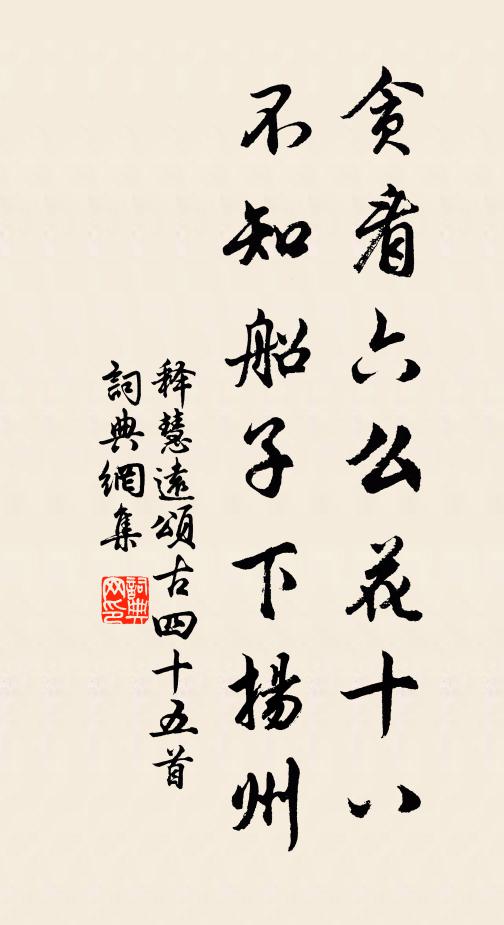 贪看六么花十八
不知船子下揚州
释慧遠頌古四十五首
詞典網集
詞典
网印